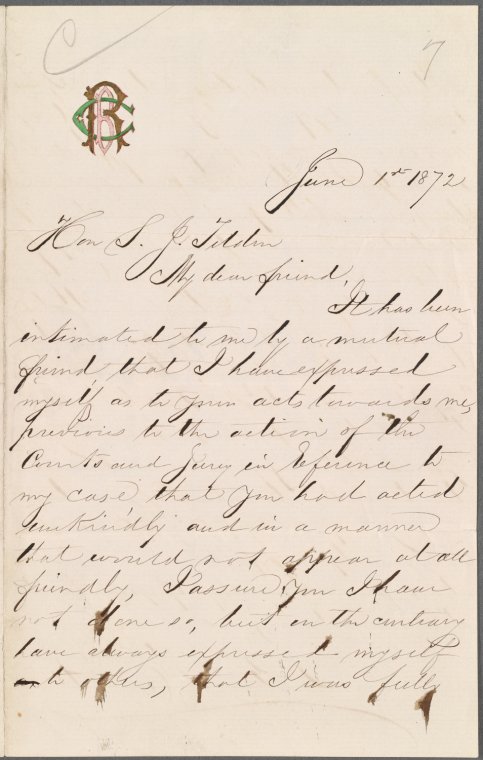 7
June 1st 1872
Hon S. J. Tilden
My dear friend,
It has been
intimated to me by a mutual
friend, that I have expressed
myself as to your acts towards me,
previous to the action of the
Courts and Jury in reference to
my case that you had acted
unkindly and in a manner
that would not appear at all
friendly, I assure you I have
not done so, but on the contrary
have always expressed myself
to others, that I was fully